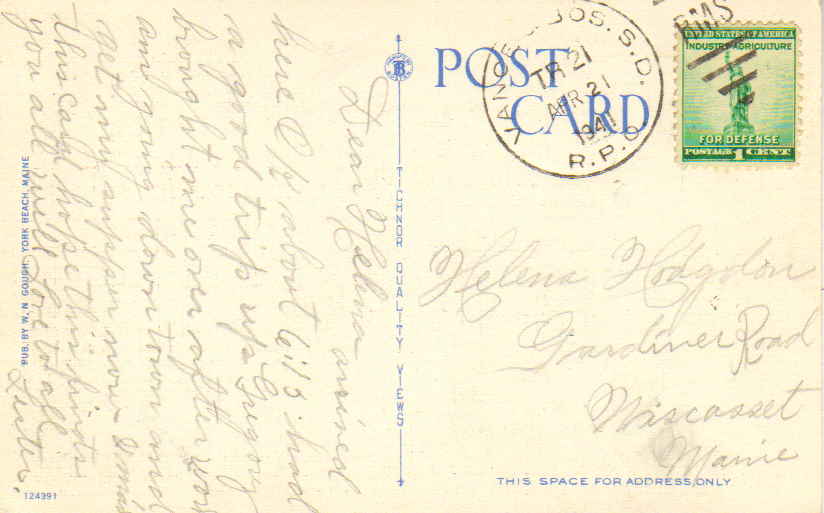 Dear Helena arrived
here O/K about 6:15 had
a good trip up Gregory
brought me over after
am going down town and
get my supper now &
this card hope this finds
you all well love to all
PUB. BY W. N. GOUGH, YORK BEACH, MAINE
124391
TICHNOR QUALITY VIEWS
POST CARD
VANCE. & BOS. S.D.
TR 21
APR 21
1941
R.P.O.
RMS
UNITED STATES OF AMERICA
INDUSTRY AGRICULTURE
FOR DEFENSE
POSTAGE 1 CENT
Helena Hodgdon
Gardiner Road
Wiscasset
Maine
THIS SPACE FOR ADDRESS ONLY